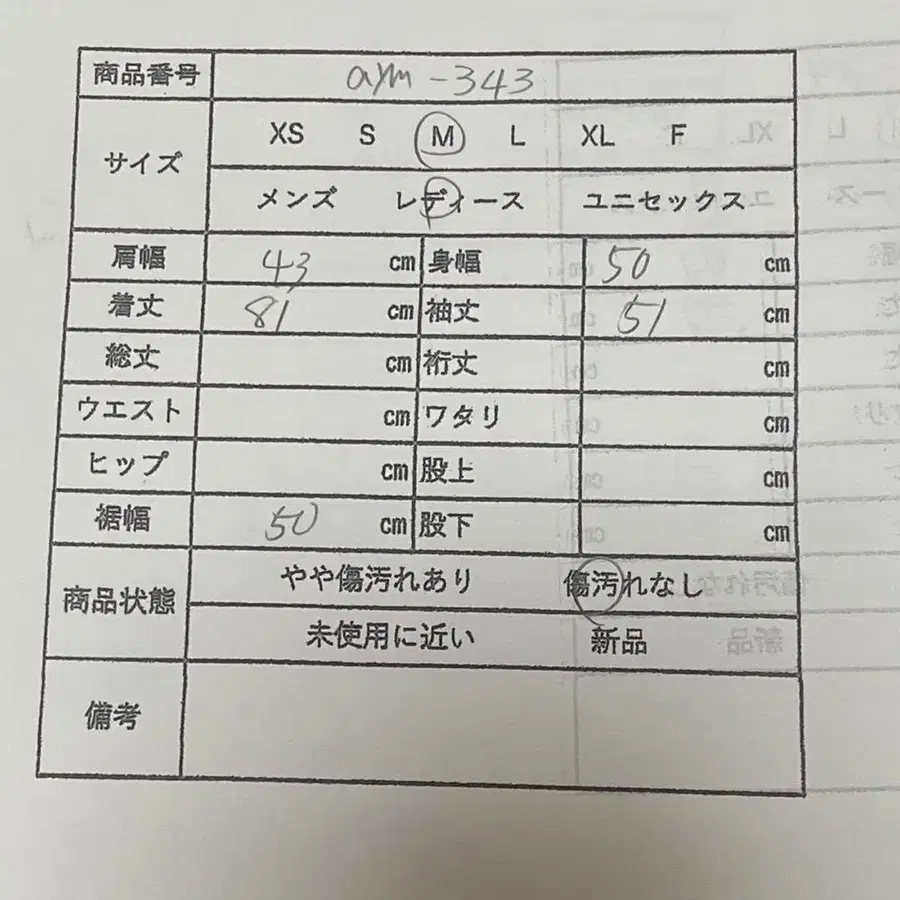 商品番号 aym-343
サイズ XS S M L XL F
メンズ レディース ユニセックス
肩幅 43 cm 身幅 50 cm
着丈 81 cm 袖丈 51 cm
総丈 cm 裄丈 cm
ウエスト cm ワタリ cm
ヒップ cm 股上 cm
裾幅 50 cm 股下 cm
商品状態 やや傷汚れあり 傷汚れなし
未使用に近い 新品
備考